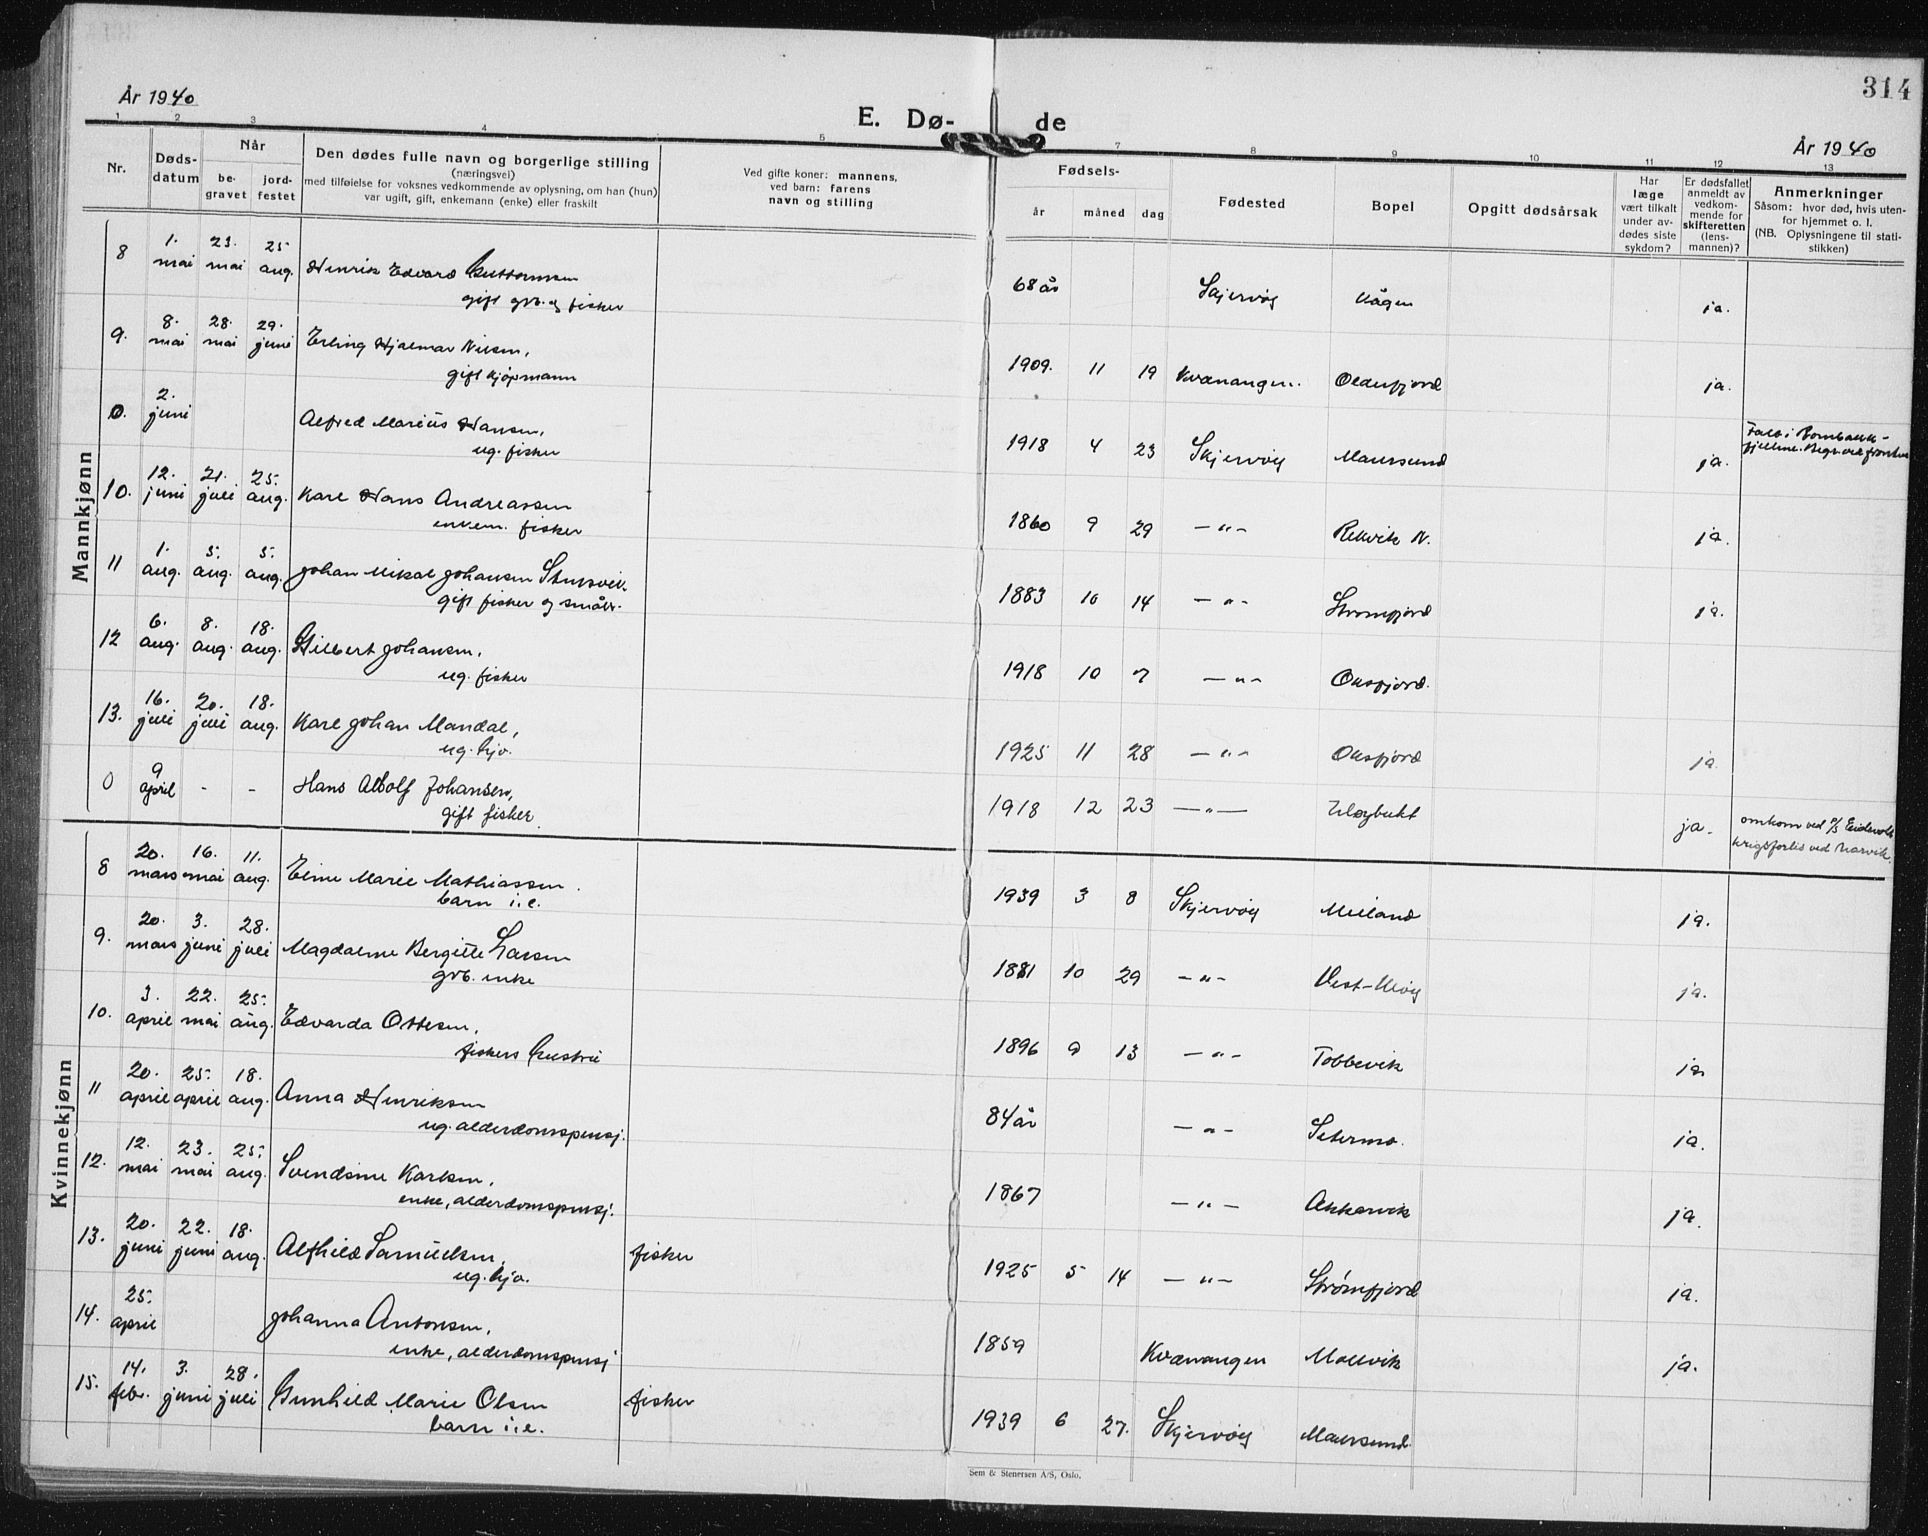 314
År 1940
E. Dø-
de
År 1940
1 2 3 4 5 7 8 9 10 11 12 13
Nr.
Døds-
datum
Når
be-
gravet
jord-
festet
Den dødes fulle navn og borgerlige stilling
(næringsvei)
med tilføielse for voksnes vedkommende av oplysning, om han (hun)
var ugift, gift, enkemann (enke) eller fraskilt
Ved gifte koner: mannens,
ved barn: farens
navn og stilling
Fødsels-
år måned dag
Fødested
Bopel
Opgitt dødsårsak
Har
læge
vært tilkalt
under av-
dødes siste
sykdom?
Er dødsfallet
anmeldt av
vedkom-
mende for
skifteretten
(lens-
mannen)?
Anmerkninger
Såsom: hvor død, hvis uten-
for hjemmet o. l.
(NB. Oplysningene til stati-
stikken)
Mannkjønn
8 1. mai 23. mai 25 aug. Henrik Edvard Guttormsen
gift grb. og fisker
68 år Skjervøy Kågen ja.
9. 8. mai 28. mai 29. juni Erling Hjalmar Nilsen,
gift kjøpmann
1909. 11 19 Kvænangen. Olderfjord ja.
0. 2. juni Alfred Marius Hansen,
ug. fisker
1918 4 23 Skjervøy Maursund ja.
10. 12. juni 21. juli 25. aug. Karl Hans Andreassen
enkem. fisker
1860 9 29 —"— Rekvik N. ja.
11 1. aug. 5. aug. 5. aug. Johan Mikal Johansen
gift fisker og småbr.
1883 10 14 —"— Strømfjord ja.
12 6. aug. 8. aug. 18. aug. Hilbert Johansen,
ug. fisker
1918 10 7 —"— Oksfjord. ja.
13. 16. juli 20. juli 18. aug. Karl Johan Mandal,
ug. hjv.
1925 11 28 —"— Oksfjord ja.
0 9 april - - Hans Adolf Johansen,
gift fisker
1918 12 23 —"— Uløybukt ja. omkom ved P/S Eidsvold
krigsforlis ved Narvik.
Kvinnekjønn
8 20. mars 16. mai 11. aug. Marie Mathiassen.
barn i.e.
1939 3 8 Skjervøy Meiland ja.
9. 20. mars 3. juni 28. juli Magdalene Bergitte Larsen
grb. enke
1881 10 29 —"— Vest-Uløy ja.
10. 3. april 22. mai 25. aug. Edvarda Ottesen,
fiskers hustru
1896 9 13 —"— Tobbevik ja
11 20. april 25. april 18. aug. Anna Henriksen
ug. alderdomspensj.
84 år —"— Setermo. ja.
12. 12. mai 23. mai 25. aug. Svendsine Karlsen,
enke, alderdomspensj.
1867 —"— Akkarvik ja.
13. 20. juni 22. juni 18. aug. Alfhild Samuelsen,
ug. hjv. fisker
1925 5 14 —"— Strømfjord ja.
14. 25. april Johanna Antonsen,
enke, alderdomspensj
1859 Kvænangen Mollvik ja.
15. 14. febr. 3. juni 28. juli Gunhild Marie Olsen
barn i.e. fisker
1939 6 27. Skjervøy Maursund.
Sem & Stenersen A/S, Oslo.